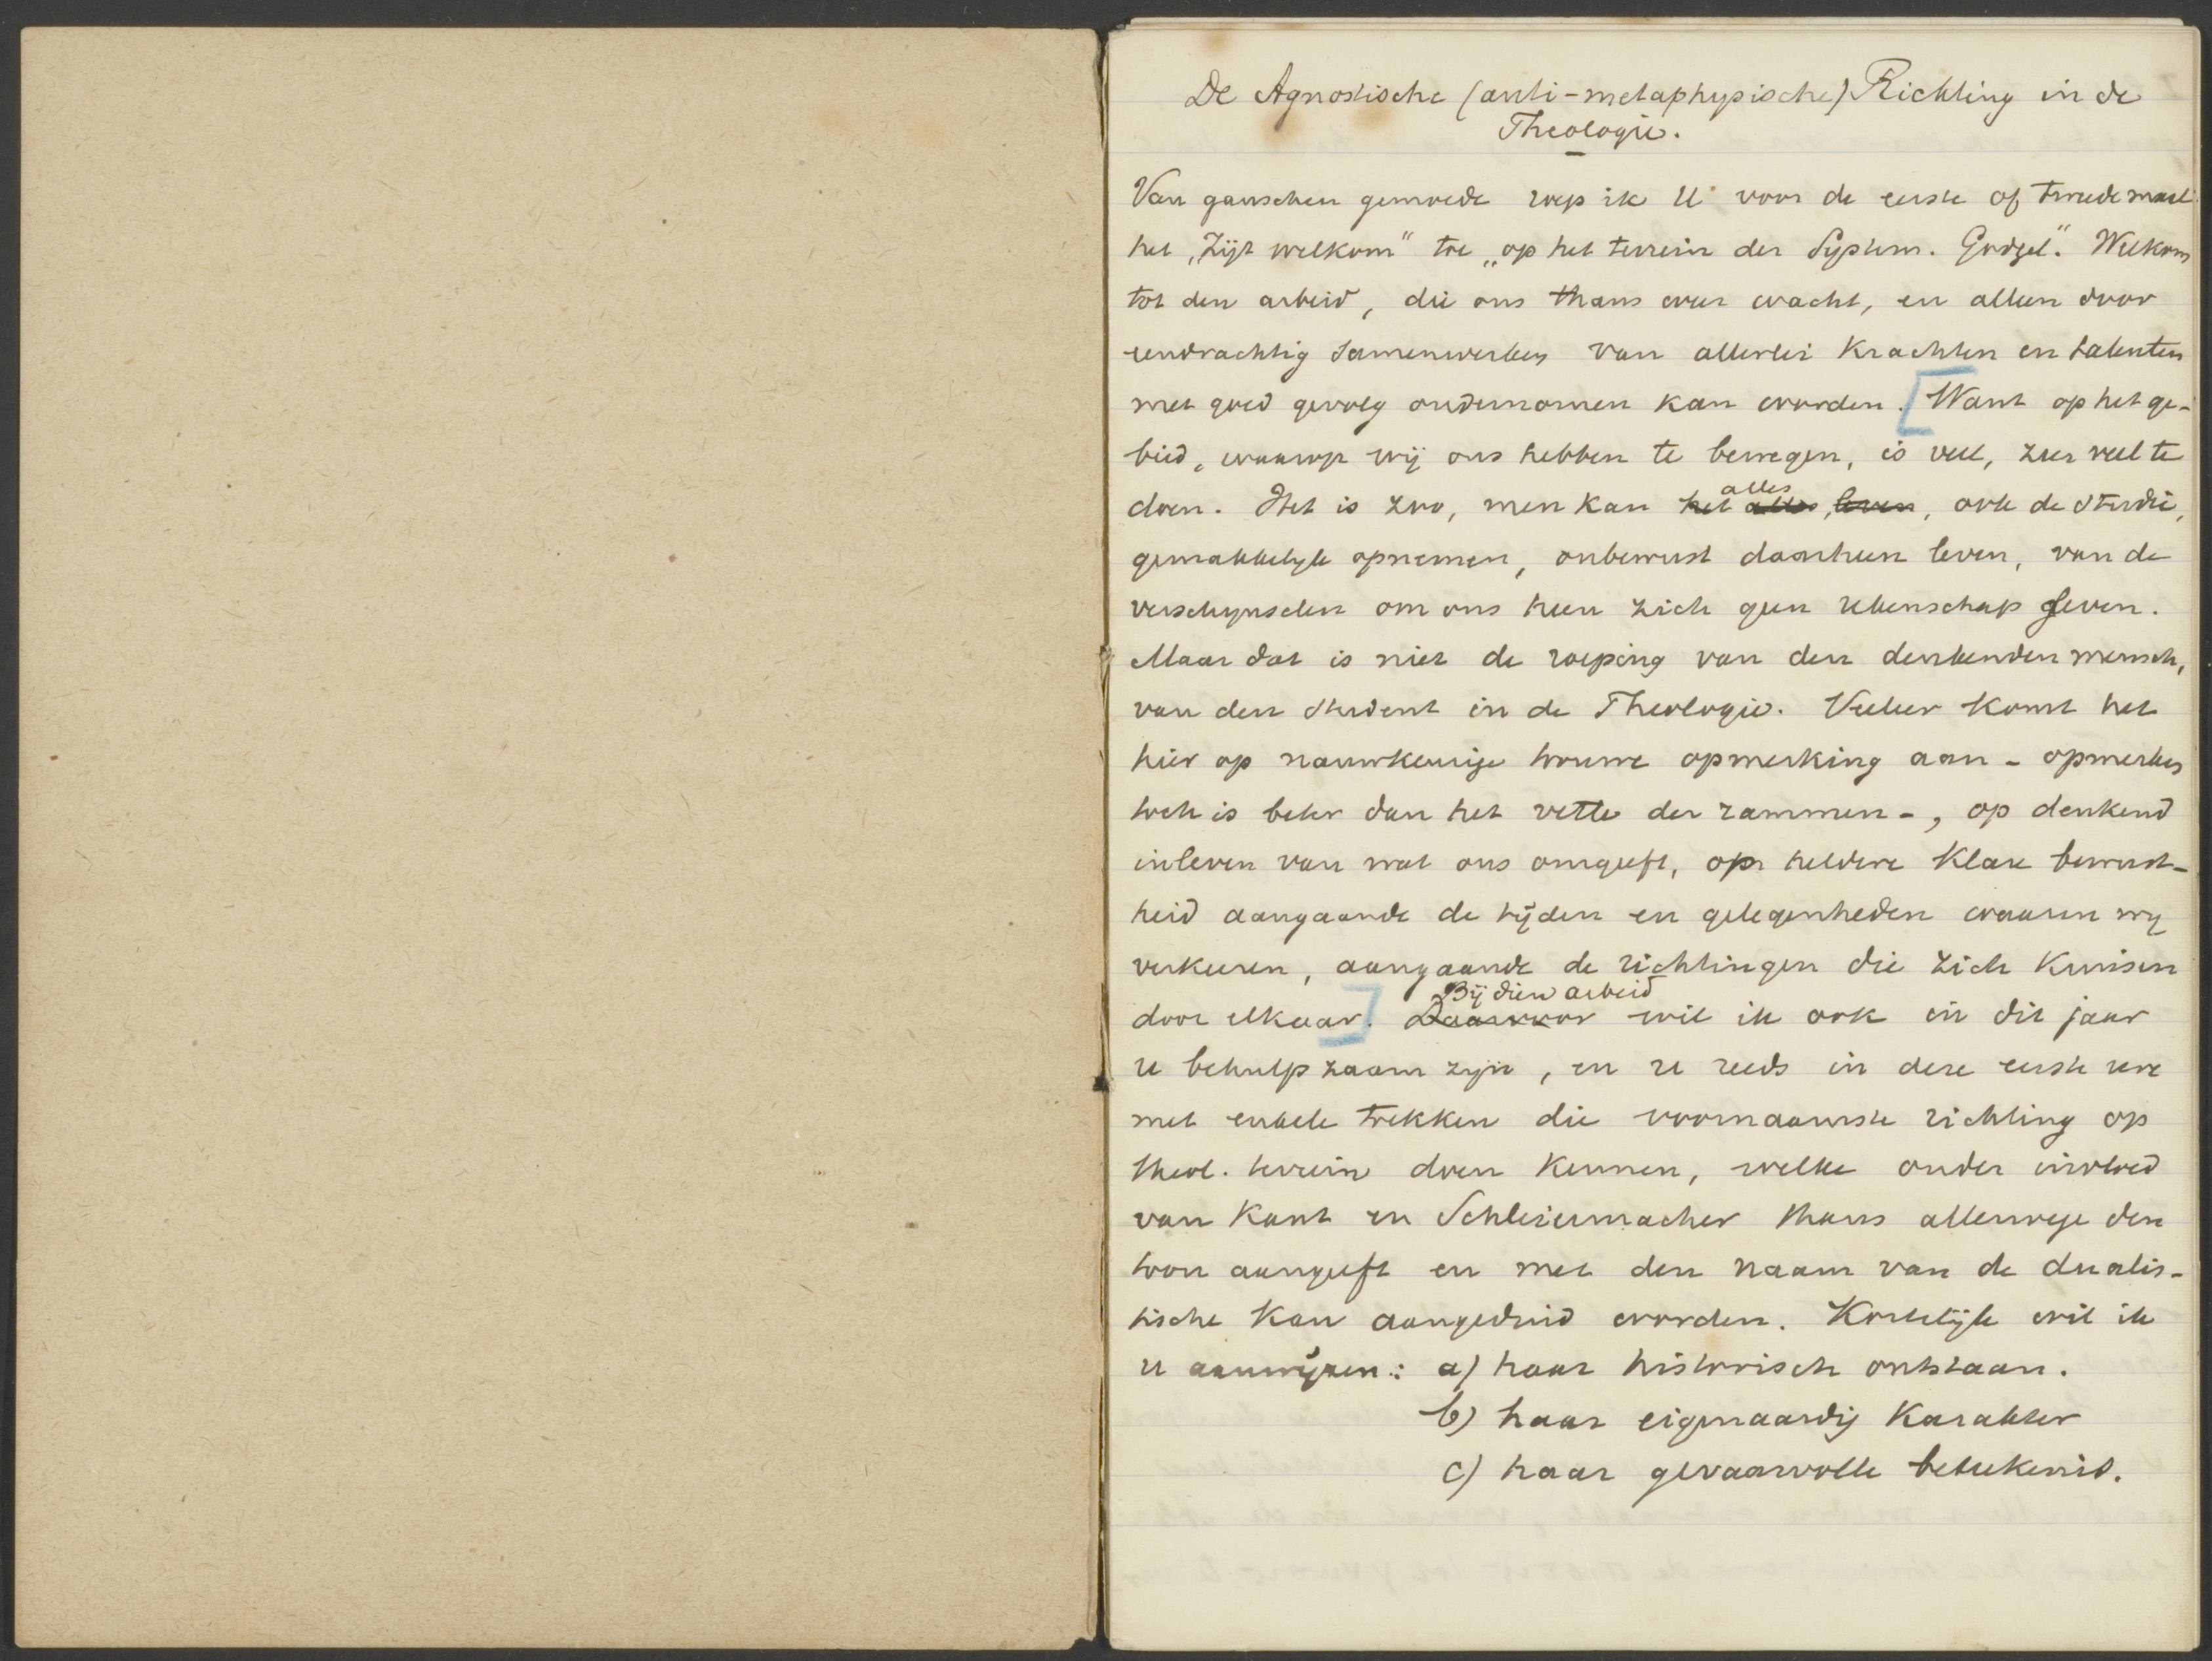 De Agnostische (anti-metaphysische) Richting in de
Theologie.
Van ganschen gemoede roep ik U voor de eerste of tweede maal
het „Zijt welkom" toe „op het terrein der System. Godgel". Welkom
tot den arbeid, die ons thans weer wacht, en alleen door
eendrachtig samenwerken van allerlei krachten en talenten
met goed gevolg ondernomen kan worden. [Want op het ge-
bied, waarop wij ons hebben te bewegen, is veel, zeer veel te
doen. Het is zoo, men kan het alles alles, leven, ook de studie,
gemakkelijk opnemen, onbewust daarheen leven, van de
verschijnselen om ons heen zich geen rekenschap geven.
Maar dat is niet de roeping van den denkenden mensch,
van den student in de Theologie. Veeleer komt het
hier op nauwkeurige trouwe opmerking aan - opmerken
toch is beter dan het vette der rammen -, op denkend
inleven van wat ons omgeeft, op heldere klare bewust-
heid aangaande de tijden en gelegenheden waarin wij
verkeeren, aangaande de richtingen die zich kruisen
door elkaar.] Bij dien arbeid
Daarvoor wil ik ook in dit jaar
u behulpzaam zijn, en u reeds in deze eerste ure
met enkele trekken die voornaamste richting op
theol. terrein doen kennen, welke onder invloed
van Kant en Schleiermacher thans allerwege den
toon aangeeft en met den naam van de dualis-
tische kan aangeduid worden. Kortelijk wil ik
u aanwijzen: a) haar historisch ontstaan.
b) haar eigenaardig karakter
c) haar gevaarvolle beteekenis.